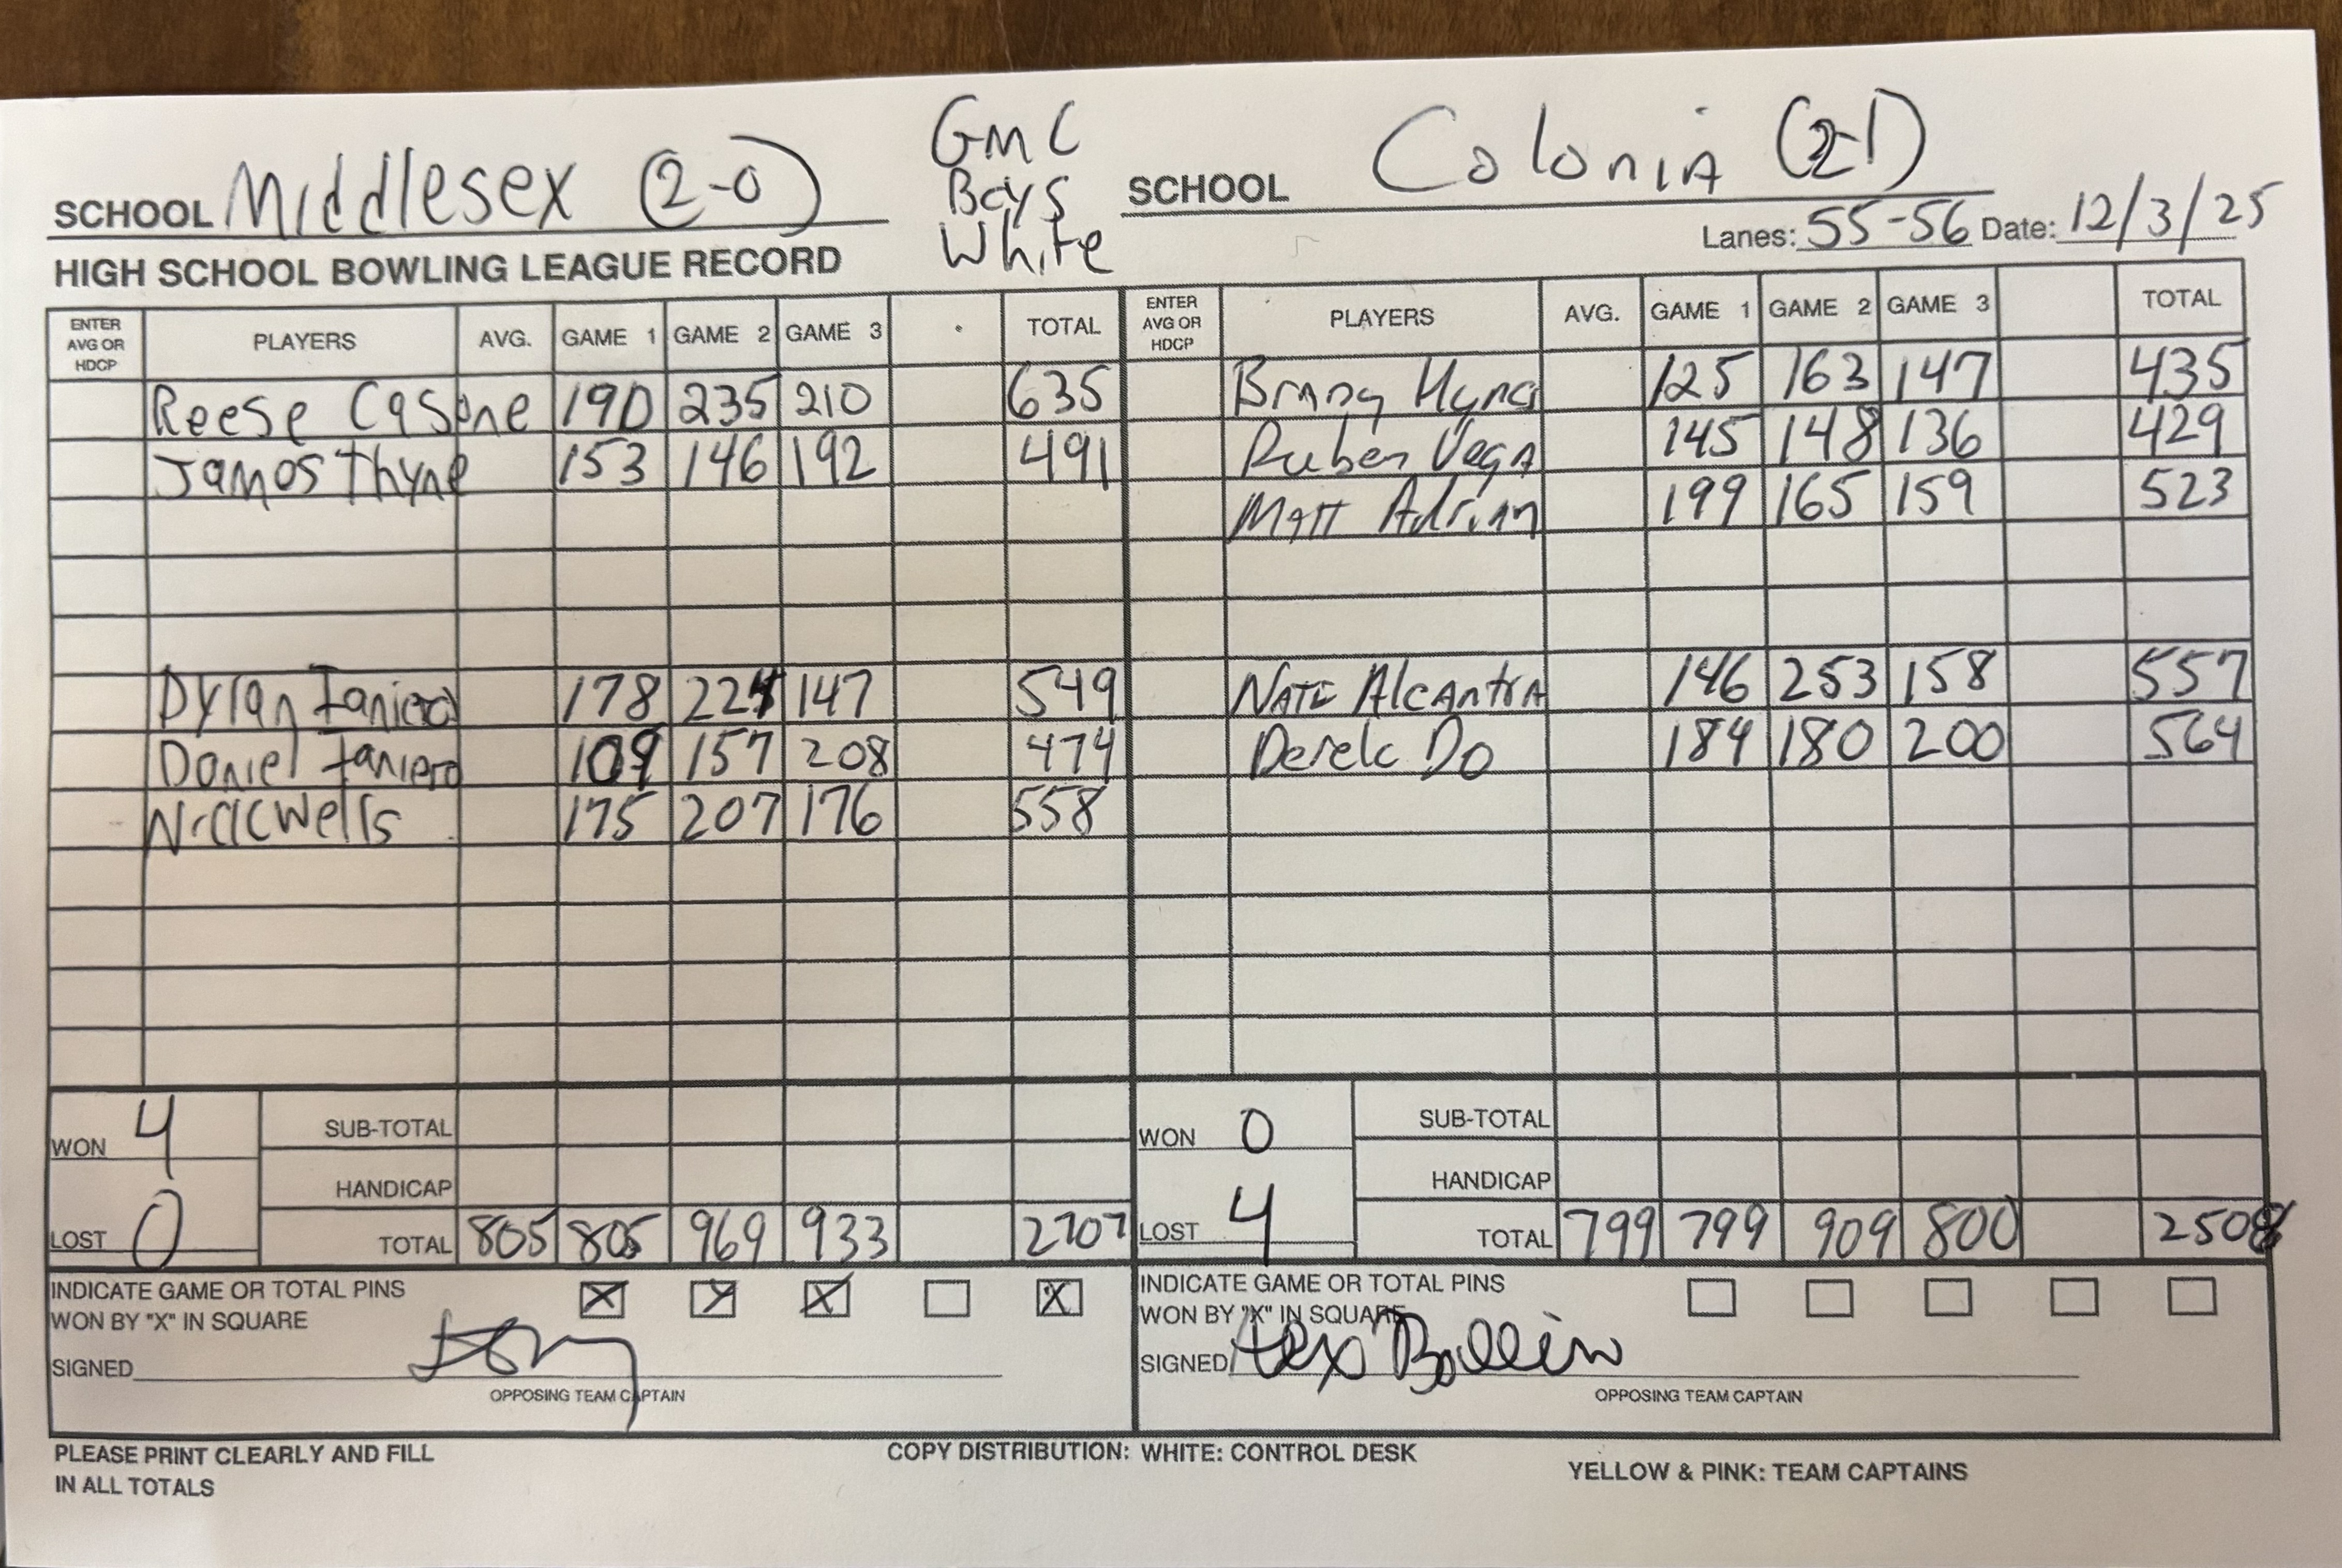 GMC
Boys
White
SCHOOL Middlesex (2-0)
SCHOOL Colonia (2-1)
Lanes: 55-56 Date: 12/3/25
HIGH SCHOOL BOWLING LEAGUE RECORD
ENTER AVG OR HDCP PLAYERS AVG. GAME 1 GAME 2 GAME 3 TOTAL
Reese Casone 190 235 210 635
James Thyne 153 146 192 491
Dylan Ianiero 178 224 147 549
Daniel Ianiero 109 157 208 474
Nick Wells 175 207 176 558
WON 4
LOST 0
SUB-TOTAL
HANDICAP
TOTAL 805 805 969 933 2707
INDICATE GAME OR TOTAL PINS
WON BY "X" IN SQUARE X X X X
SIGNED
OPPOSING TEAM CAPTAIN
ENTER AVG OR HDCP PLAYERS AVG. GAME 1 GAME 2 GAME 3 TOTAL
125 163 147 435
Ruben Vega 145 148 136 429
Matt Adrian 199 165 159 523
Nate Alcantra 146 253 158 557
Derek Do 184 180 200 564
WON 0
LOST 4
SUB-TOTAL
HANDICAP
TOTAL 799 799 909 800 2508
INDICATE GAME OR TOTAL PINS
WON BY "X" IN SQUARE
SIGNED Alex Bollin
OPPOSING TEAM CAPTAIN
PLEASE PRINT CLEARLY AND FILL
IN ALL TOTALS
COPY DISTRIBUTION: WHITE: CONTROL DESK
YELLOW & PINK: TEAM CAPTAINS